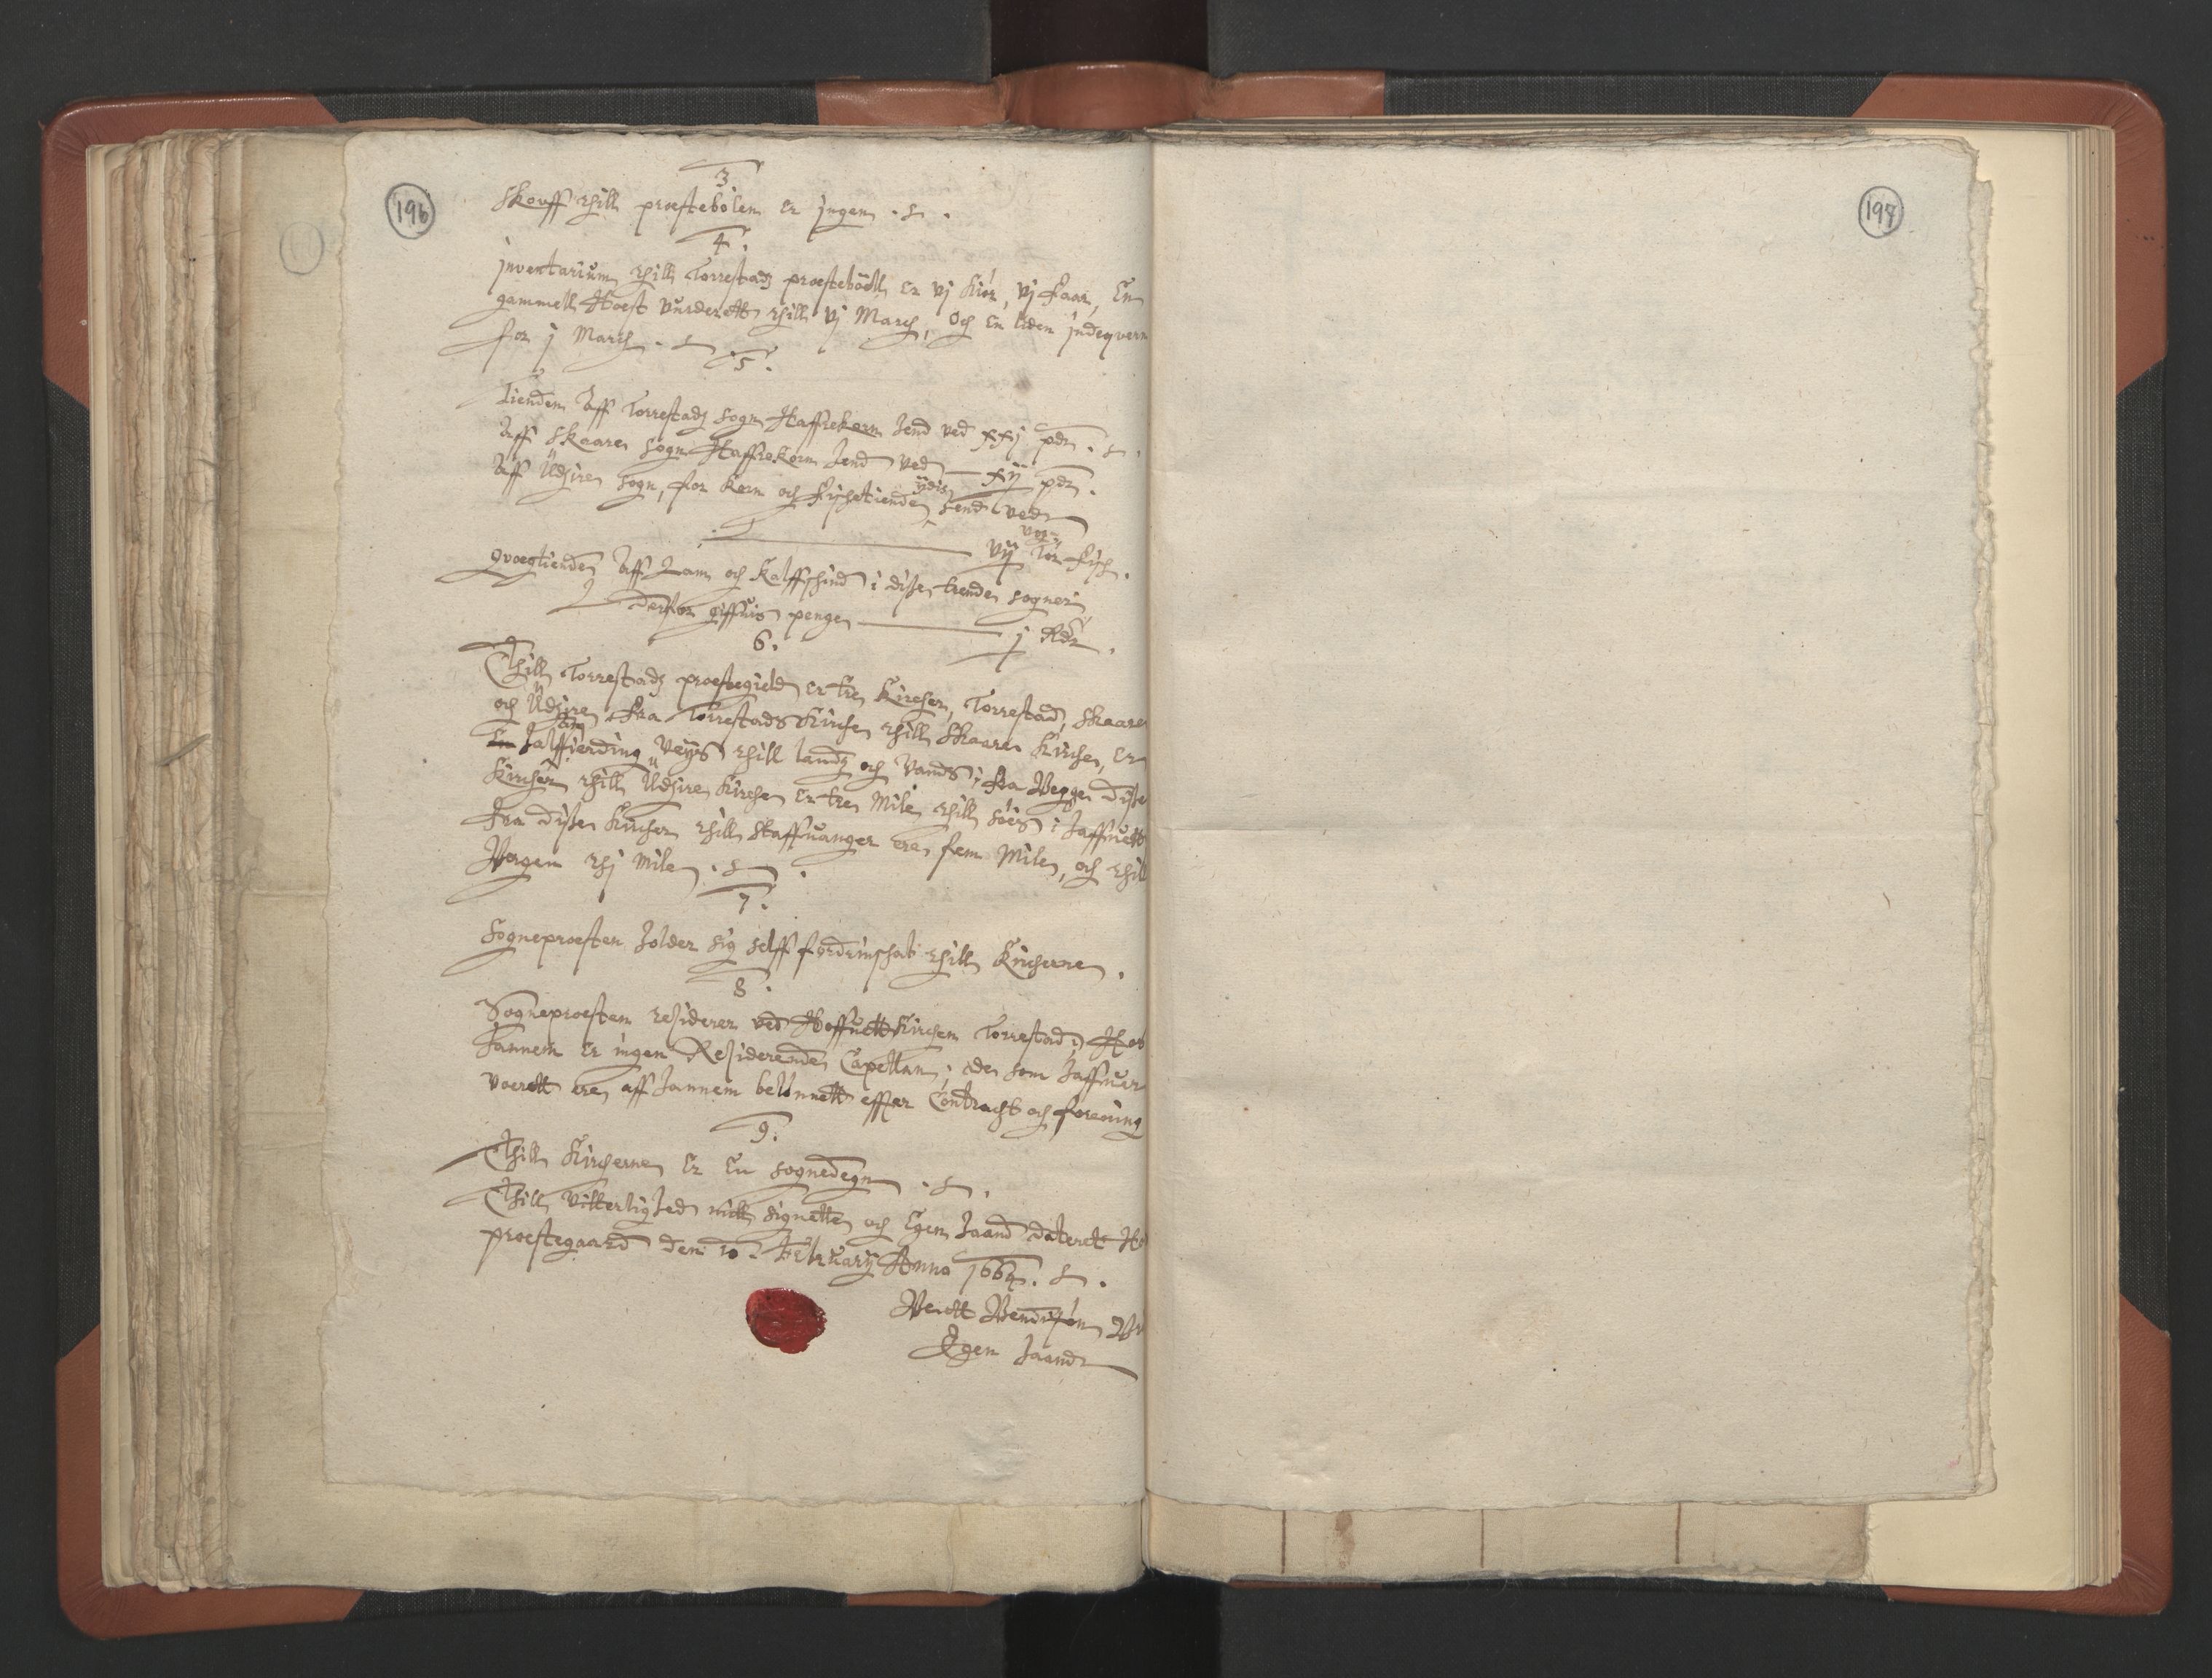 196
3
Skouff thill præstebolen er jngen
4.
jnventarium thill Torrestadz præstebøell er vj kiør, vj faar, En
gammell Hæst vurderett thill vj March, och en liden
for j March
5.
Tienden Aff Torrestadz sogn Haffrekorn hend ved xxj pdr.
Aff Skaare sogn Haffrekorn hend ved xij pdr.
Aff Udzire sogn, for korn och fischetiende ydis hend ved
vog
vij Tör fisch.
qvoegtienden Aff Lam och kalffschind i disse trende sogner
derfor giffuis penge j Rdr.
6.
Thill Torrestadz præstegield er tre Kircher, Torrestad, Skaare
och Udzire, fra Torrestads Kirche thill Skaare Kirche, er
halffierding veys thill landz och vands; fra Begge disse
Kircher thill Udzire Kirche er tre Mile thill söes i haffuett
Fra disse Kircher thill Staffuanger ere fem Mile, och thill
Bergen thj mile
7.
Sogneproesten holder sig self fordrinschab thill Kircherne.
8.
Sogneproesten residerer ved Hoffuett Kirchen Torrestad; Hos
hannem er ingen Residerende Capellan; de som haffuer
voerett ere aff hannem belönnett effter Contracht och forening
9.
Thill Kircherne Er En sognedegn
Thill vitterlighed mitt signette och Egen haand dateret
proestegaard den 10. February Anno 1664.
Bendt Bendtsön
Egen haand
198